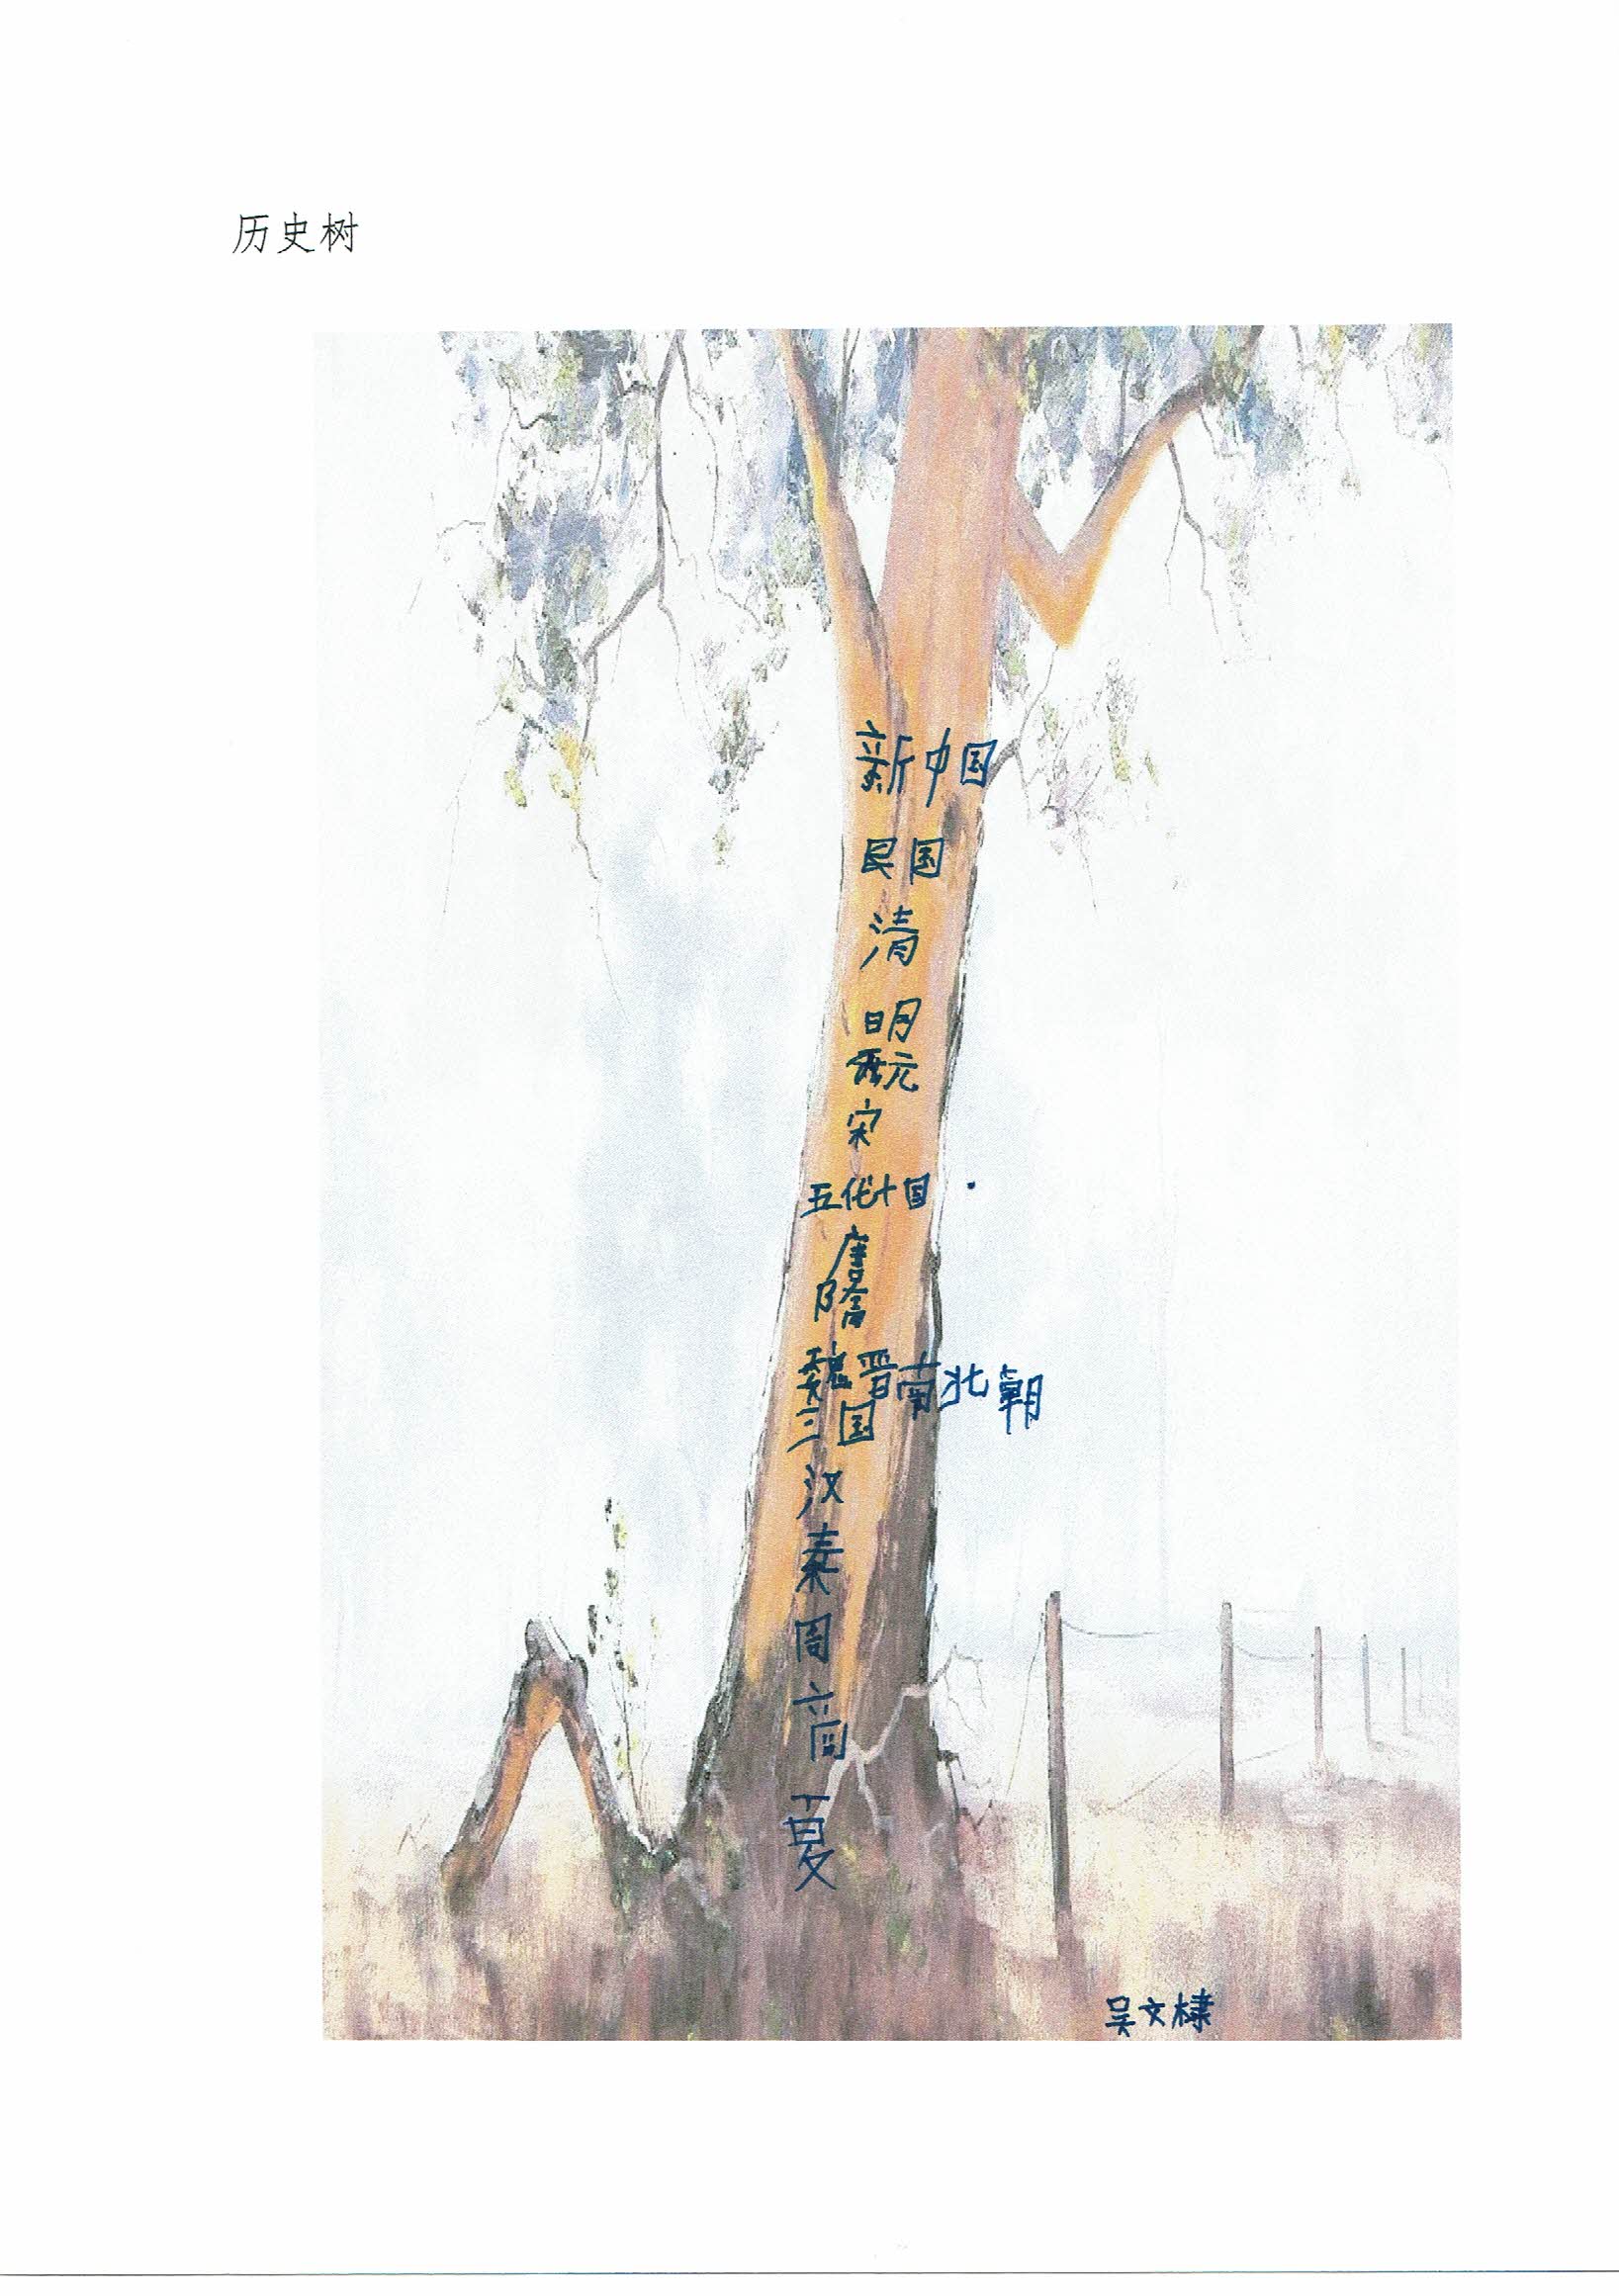 历史树
新中国
民国
清
明
元
宋
五代十国
唐
隋
魏晋南北朝
三国
汉
秦
周
商
夏
吴文棣